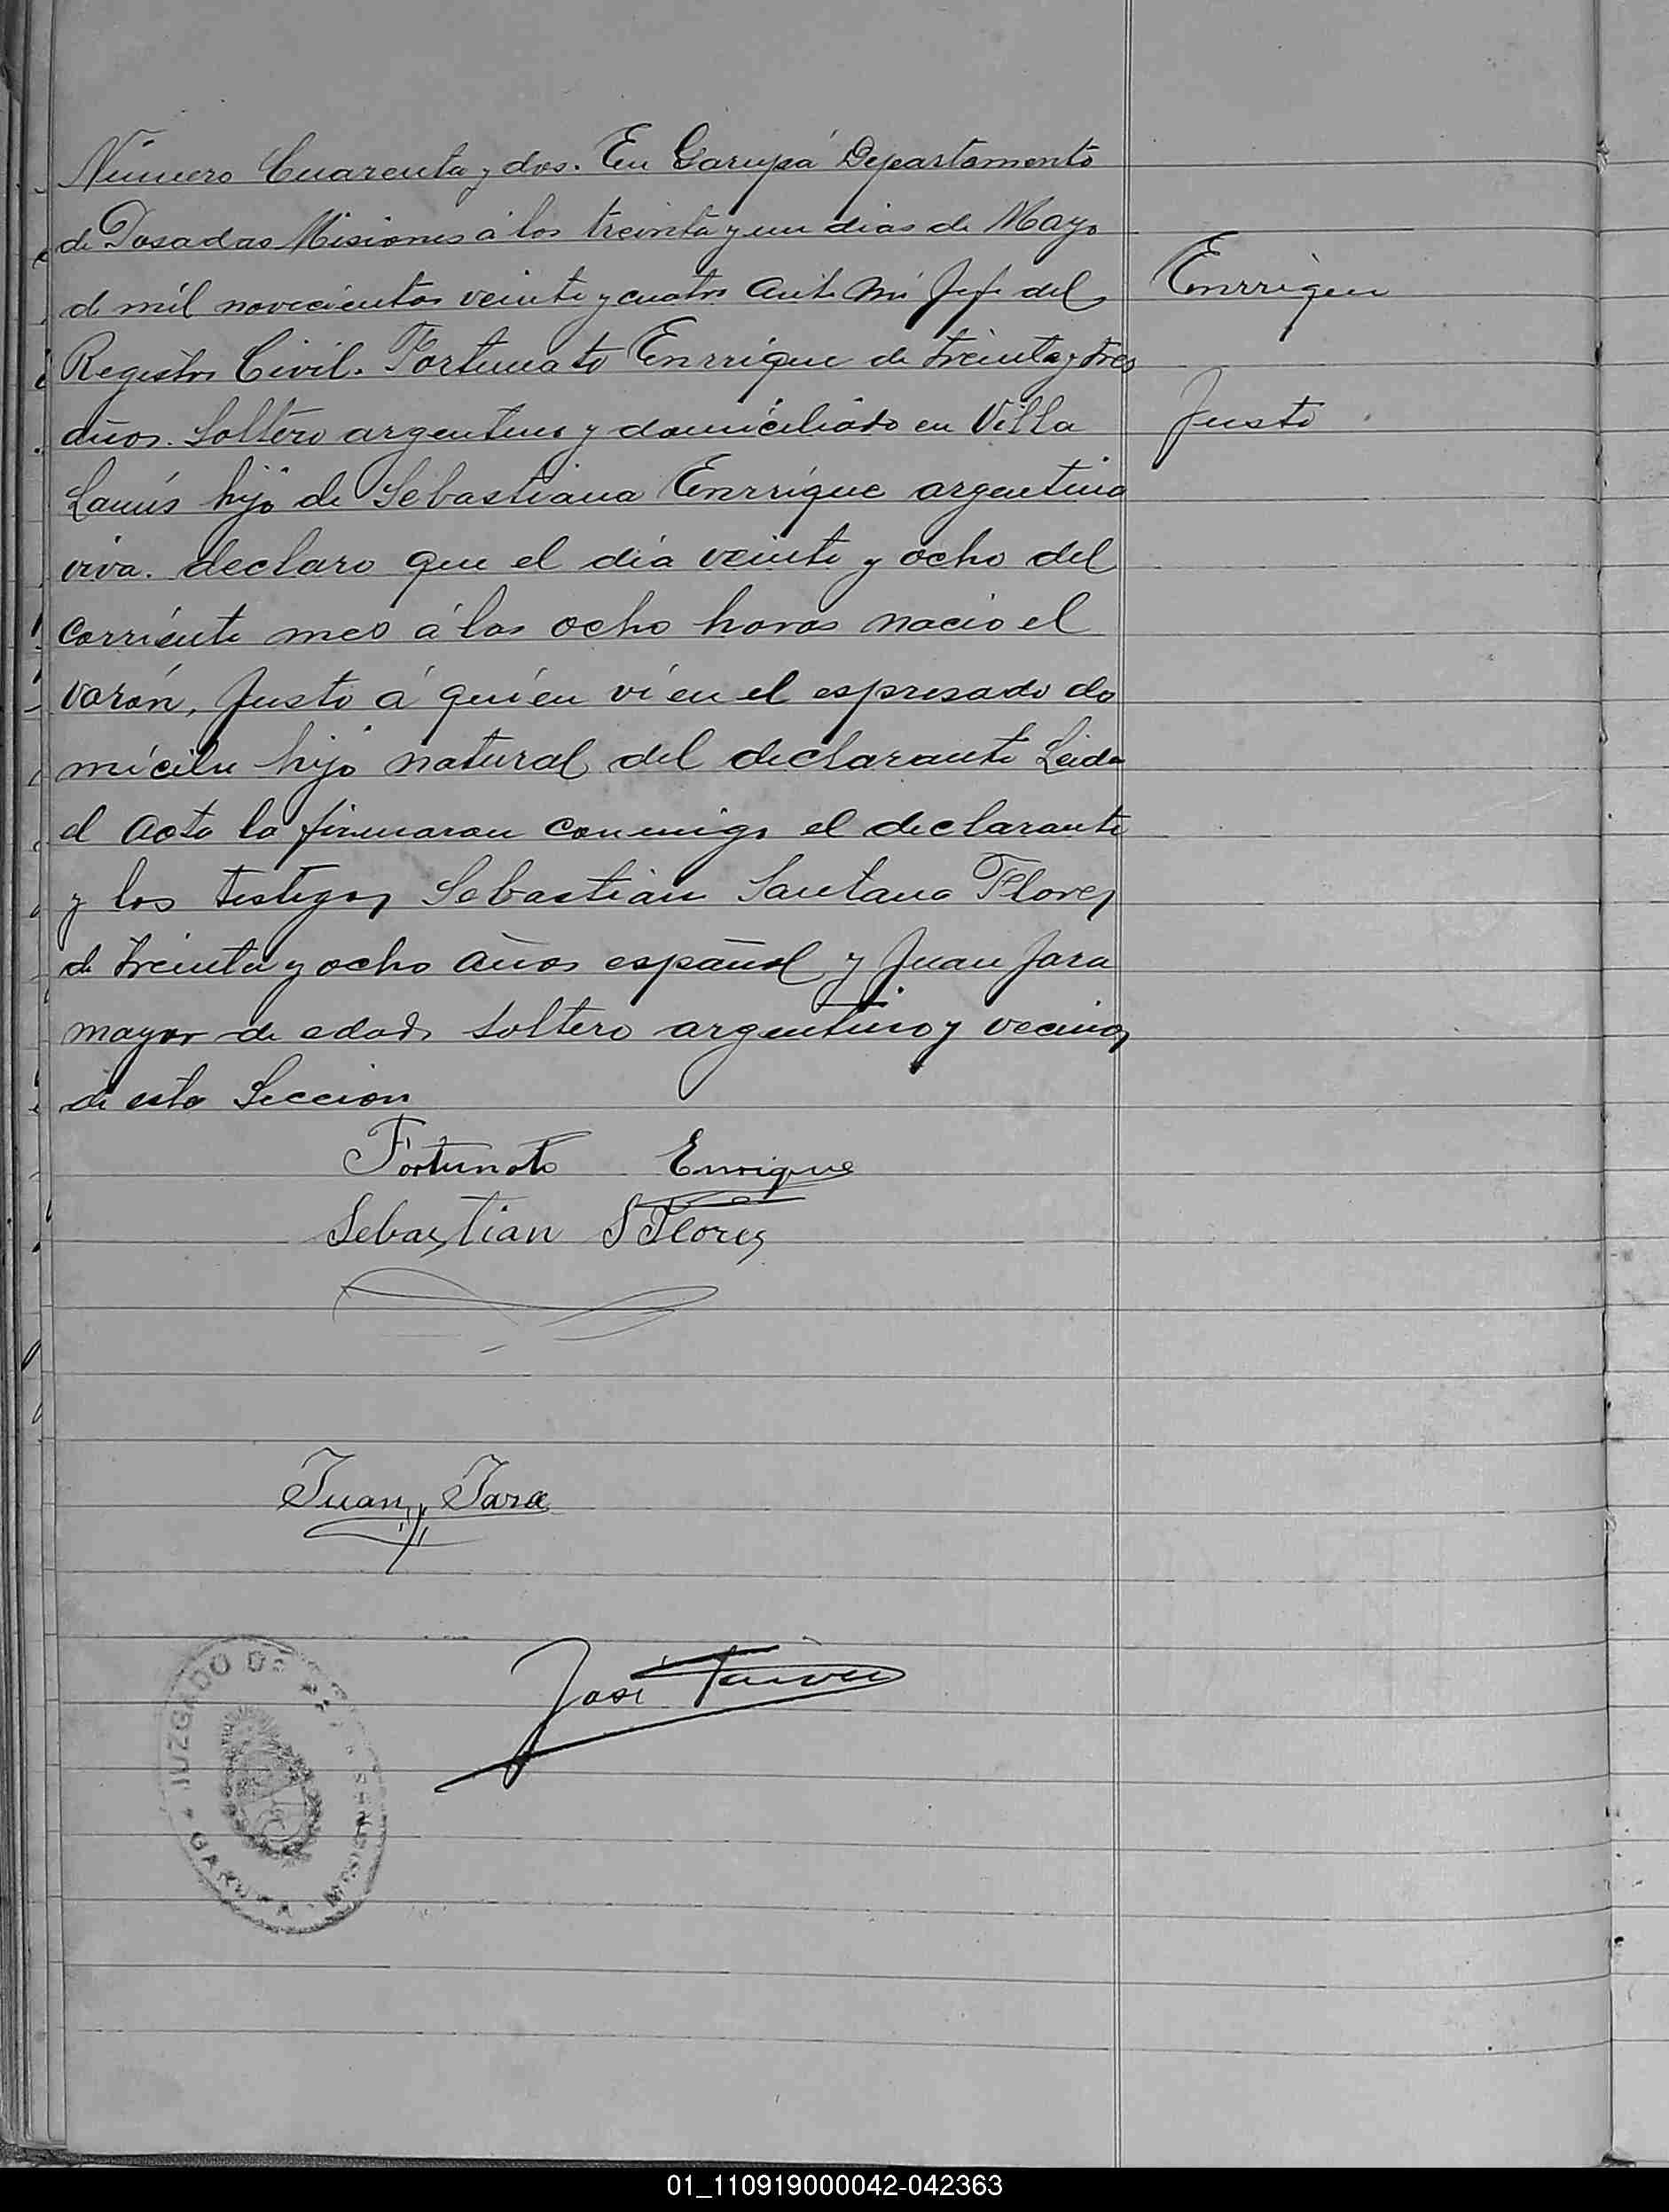 Número Cuarenta y dos. En Garupá Departamento
de Posadas Misiones á los treinta y un dias de Mayo
de mil novecientos veinte y cuatro ante Mi Jefe del
Registro Civil. Fortunato Enrrique de treinta y tres
años. Soltero argentino y domiciliado en Villa
Lanús hijo de Sebastiana Enrrique argentina
viva. declaro que el día veinte y ocho del
corriente mes á las ocho horas nacio el
varón, Justo á quién ví en el espresado do
micilio hijo natural del declarante Leida
el acta la firmaron conmigo el declarante
y los testigos Sebastián Santana Flores
de treinta y ocho años español y Juan Jara
mayor de edad soltero argentino y vecinos
de esta Sección
Enrrique
Justo
Fortunato Enrrique
Sebastian S Flores
Juan Jara
José
JUZGADO DE
GARUPA MISIONES
01_110919000042-042363